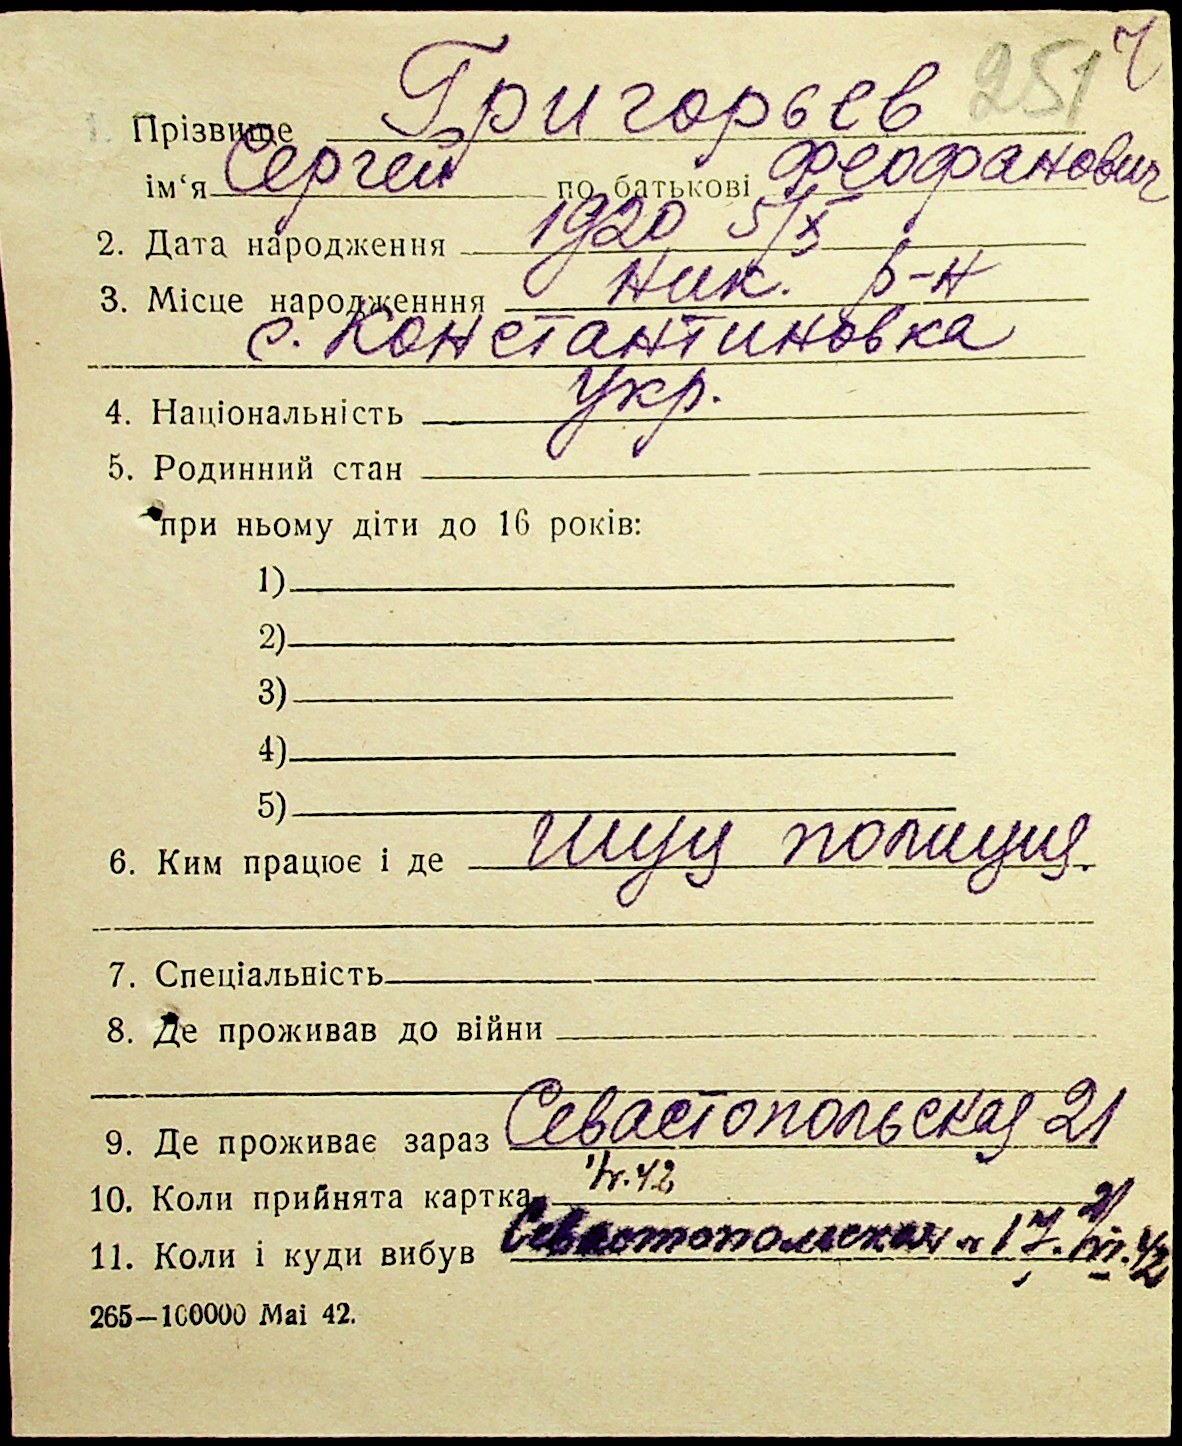 251 ч
1. Прізвище Григорьев
ім‘я Сергей по батькові Феофанович
2. Дата народження 1920 5/X
3. Місце народженння Ник. р-н
с. Константиновка
4. Національність Укр.
5. Родинний стан
при ньому діти до 16 років:
1)
2)
3)
4)
5)
6. Ким працює і де полиция.
7. Спеціальність
8. Де проживав до війни
9. Де проживає зараз Севастопольская 21
10. Коли прийнята картка
11. Коли і куди вибув Севастопольская 17. 42
265—100000 Маі 42.